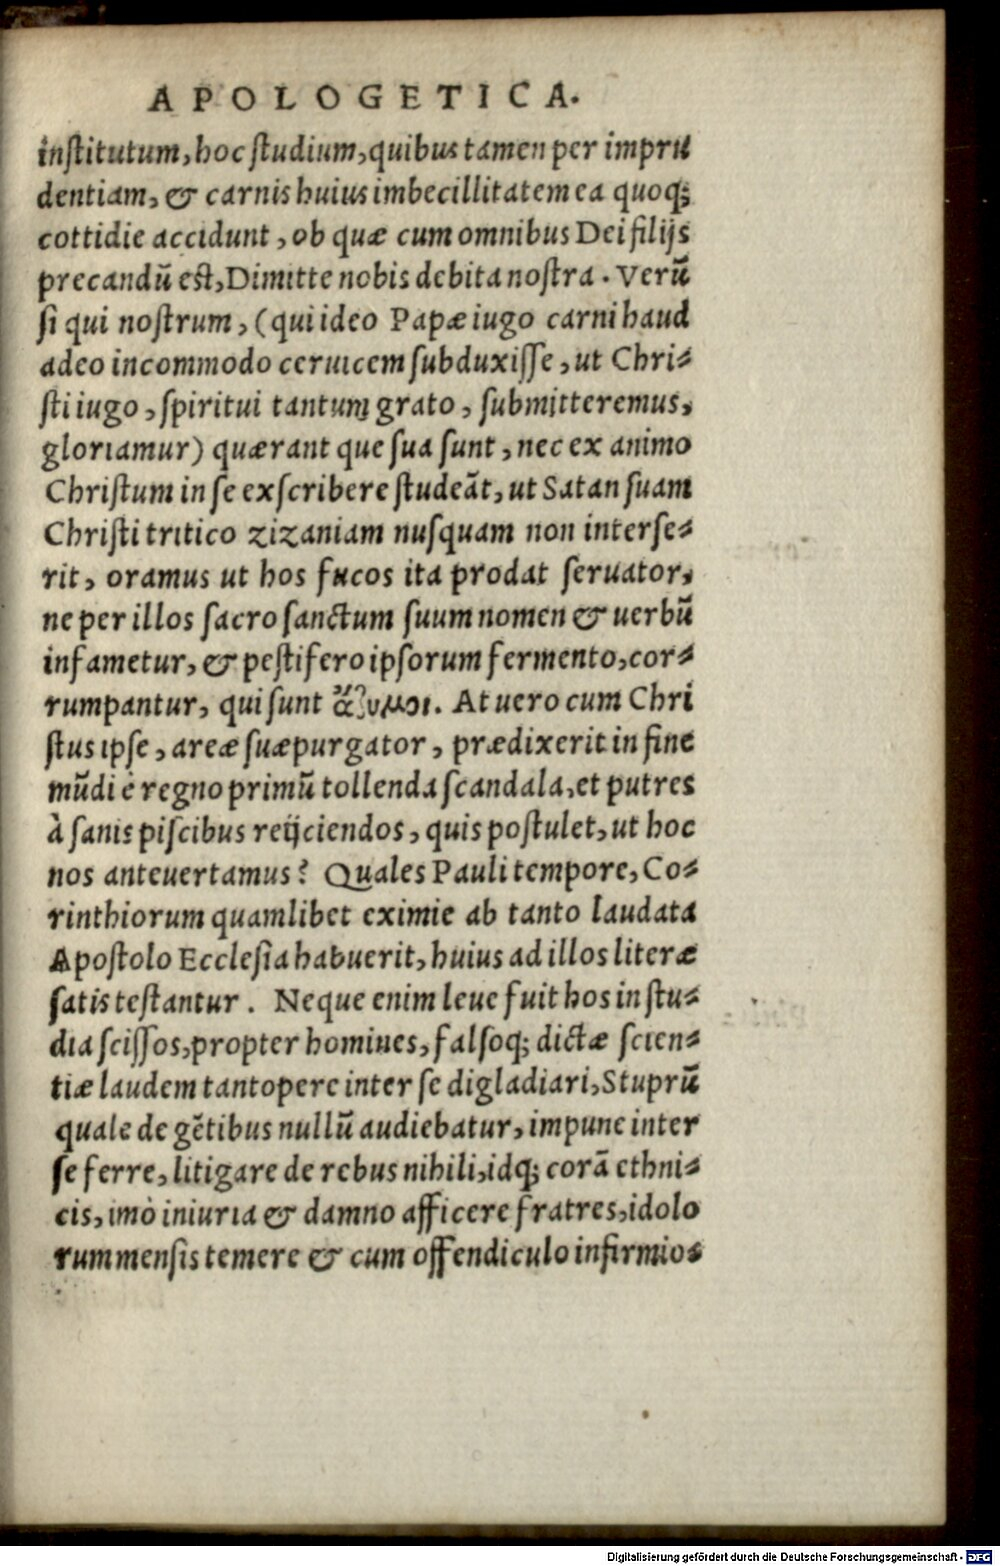 APOLOGETICA.
inſtitutum, hoc ſtudium, quibus tamen per impru
dentiam, & carnis huius imbecillitatem ea quoq;
cottidie accidunt, ob quæ cum omnibus Dei filijs
precandũ eſt, Dimitte nobis debita noſtra. Verũ
ſi qui noſtrum, (qui ideo Papæ iugo carni haud
adeo incommodo ceruicem ſubduxiſſe, ut Chri-
ſti iugo, ſpiritui tantum grato, ſubmitteremus,
gloriamur) quærant que ſua ſunt, nec ex animo
Chriſtum in ſe exſcribere ſtudeãt, ut Satan ſuam
Chriſti tritico zizaniam nuſquam non interſe-
rit, oramus ut hos fucos ita prodat ſeruator,
ne per illos ſacro ſanctum ſuum nomen & uerbũ
infametur, & peſtifero ipſorum fermento, cor-
rumpantur, qui ſunt ἄζυμοι. At uero cum Chri
ſtus ipſe, areæ ſuæ purgator, prædixerit in fine
mũdi è regno primũ tollenda ſcandala, et putres
à ſanis piſcibus reijciendos, quis poſtulet, ut hoc
nos anteuertamus? Quales Pauli tempore, Co-
rinthiorum quamlibet eximie ab tanto laudata
Apoſtolo Eccleſia habuerit, huius ad illos literæ
ſatis teſtantur. Neque enim leue fuit hos in ſtu-
dia ſciſſos, propter homines, falſoq; dictæ ſcien-
tiæ laudem tantopere inter ſe digladiari, Stuprũ
quale de gẽtibus nullũ audiebatur, impune inter
ſe ferre, litigare de rebus nihili, idq; corã ethni-
cis, imò iniuria & damno afficere fratres, idolo
rum menſis temere & cum offendiculo infirmios
Digitalisierung gefördert durch die Deutsche Forschungsgemeinschaft - DFG